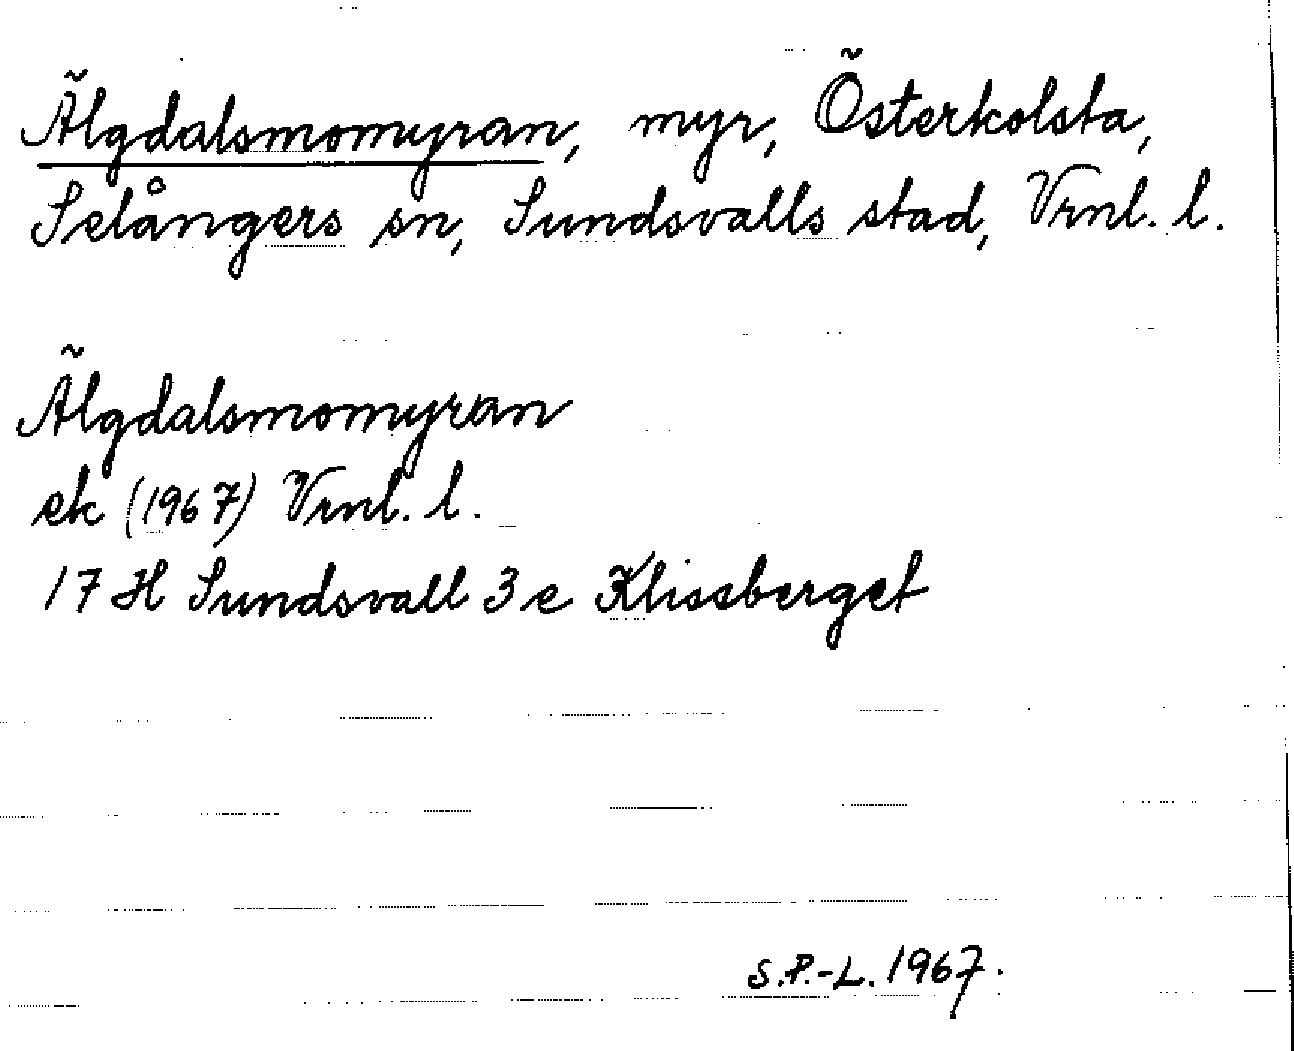 Älgdalsmomyran, myr, Österkolsta,
Selångers sn, Sundsvalls stad, Vrnl. l.
Älgdalsmomyran
ek (1967) Vrnl. l.
17 H Sundsvall 3 e Klissberget
S.P.-L. 1967.